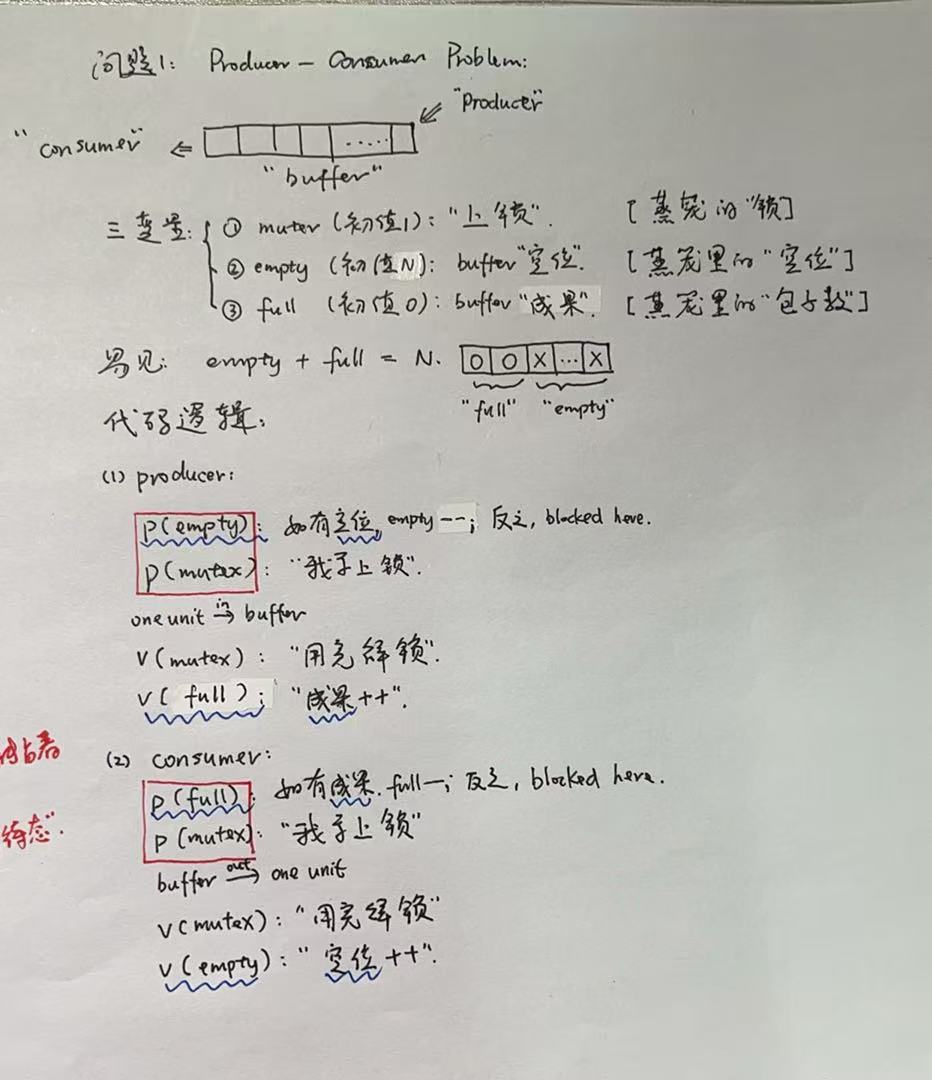 问题1: Producer — Consumer Problem:
"Producer"
"consumer"
"buffer"
三变量:
① muter (初值1): "上锁". [蒸笼的"锁]
② empty (初值N): buffer"空位". [蒸笼里的"空位"]
③ full (初值0): buffer "成果". [蒸笼里的"包子数"]
易见: empty + full = N. O O X ... X
"full" "empty"
代码逻辑:
(1) producer:
P(empty): 如有空位, empty --; 反之, blocked here.
P(mutex): "我于上锁".
one unit in→ buffer
V(mutex): "用完解锁".
V(full); "成果++".
(2) consumer:
P(full): 如有成果. full--; 反之, blocked here.
P(mutex): "我于上锁"
buffer out→ one unit
V(mutex): "用完解锁"
V(empty): "空位++".
占着
待态".